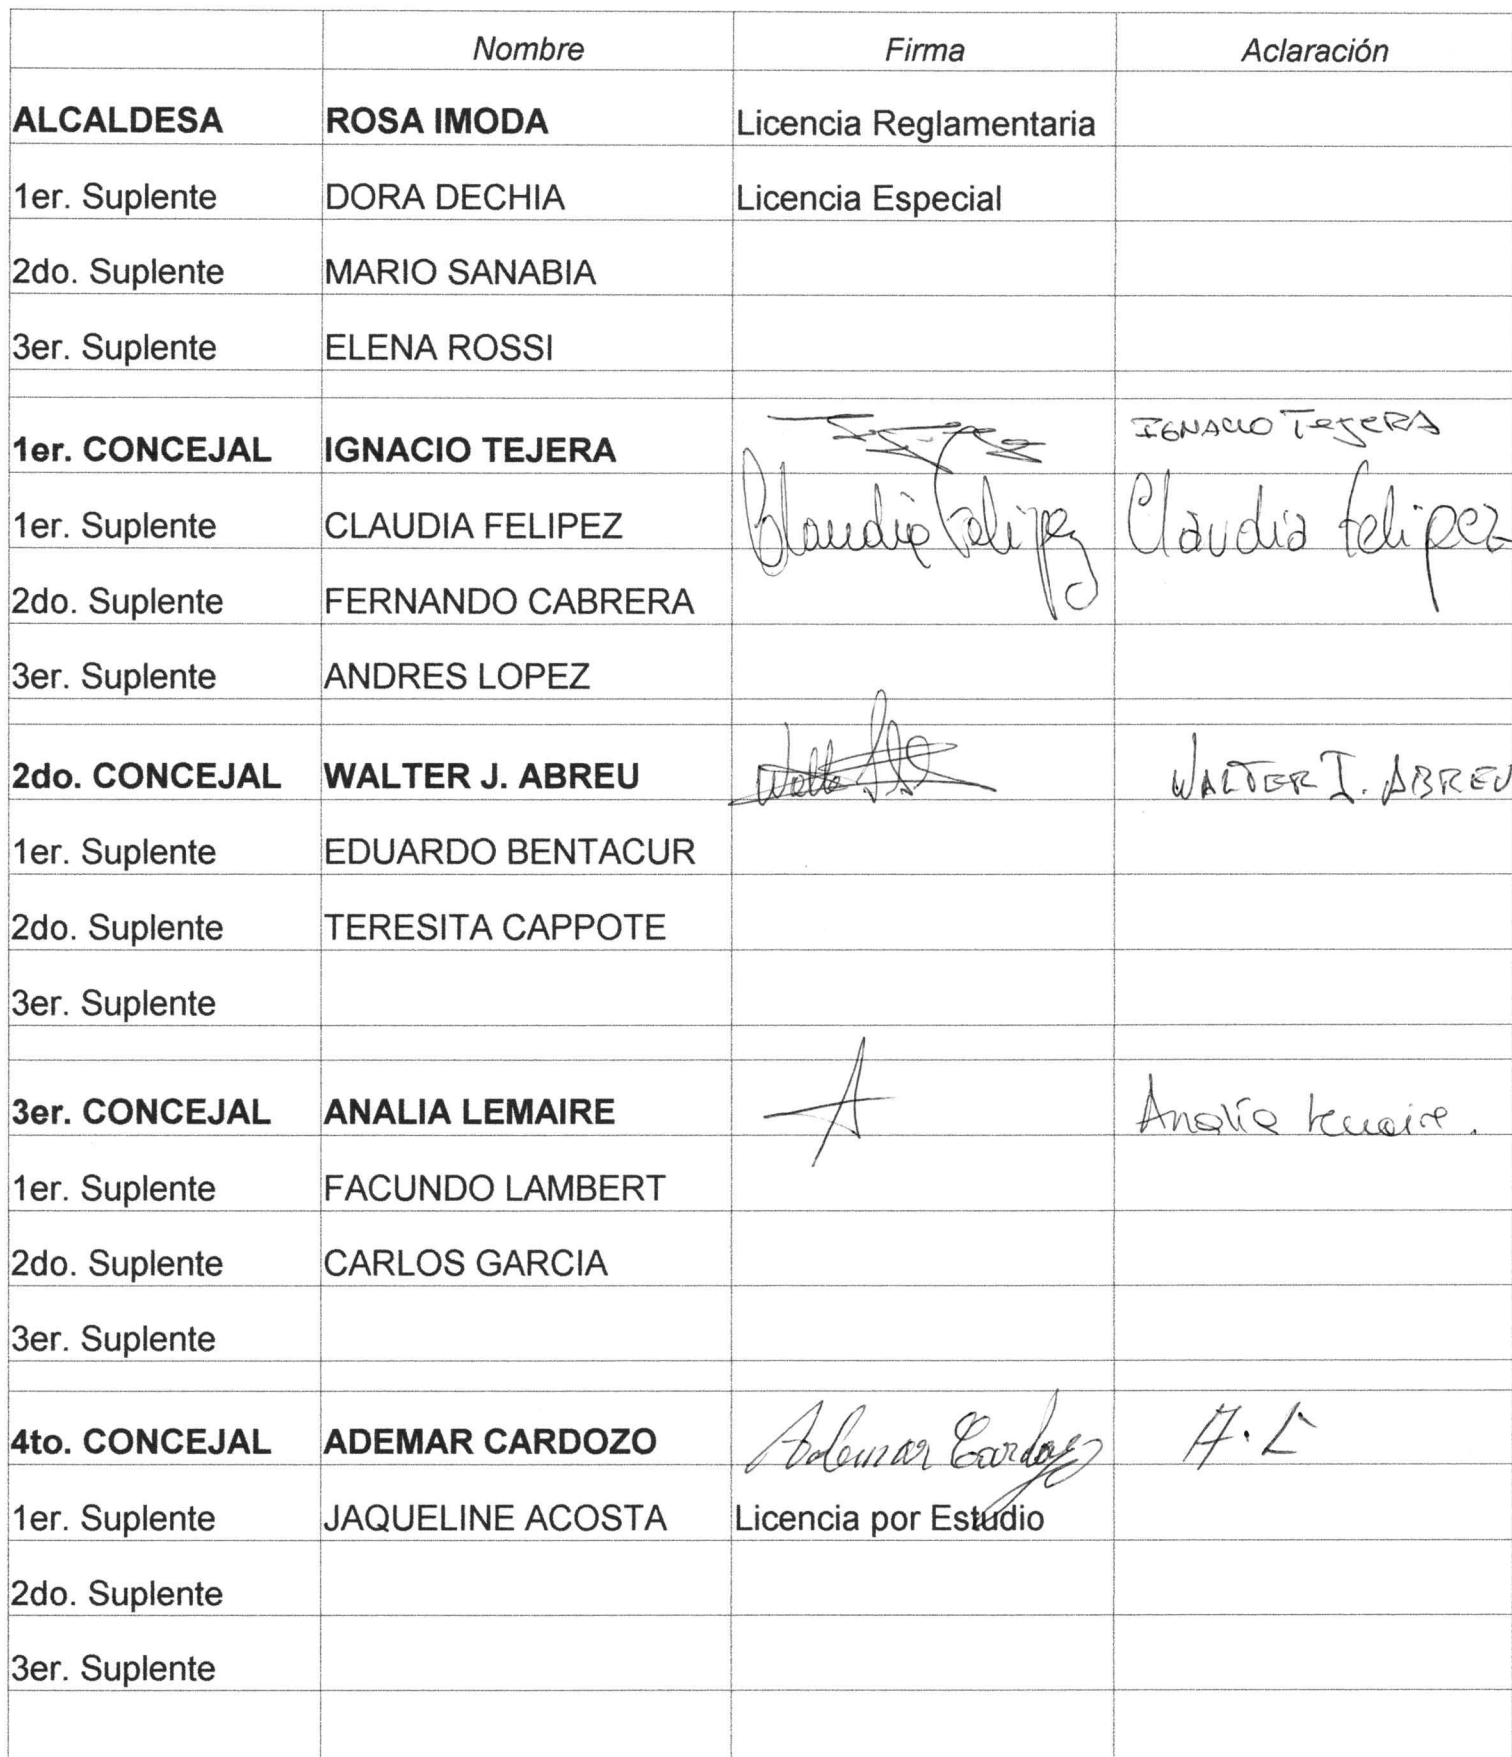 Nombre Firma Aclaración
ALCALDESA ROSA IMODA Licencia Reglamentaria
1er. Suplente DORA DECHIA Licencia Especial
2do. Suplente MARIO SANABIA
3er. Suplente ELENA ROSSI
1er. CONCEJAL IGNACIO TEJERA IGNACIO TEJERA
1er. Suplente CLAUDIA FELIPEZ Claudia Felipez Claudia Felipez
2do. Suplente FERNANDO CABRERA
3er. Suplente ANDRES LOPEZ
2do. CONCEJAL WALTER J. ABREU WALTER I. ABREU
1er. Suplente EDUARDO BENTACUR
2do. Suplente TERESITA CAPPOTE
3er. Suplente
3er. CONCEJAL ANALIA LEMAIRE A Analía Lemaire.
1er. Suplente FACUNDO LAMBERT
2do. Suplente CARLOS GARCIA
3er. Suplente
4to. CONCEJAL ADEMAR CARDOZO Ademar Cardozo
1er. Suplente JAQUELINE ACOSTA Licencia por Estudio
2do. Suplente
3er. Suplente